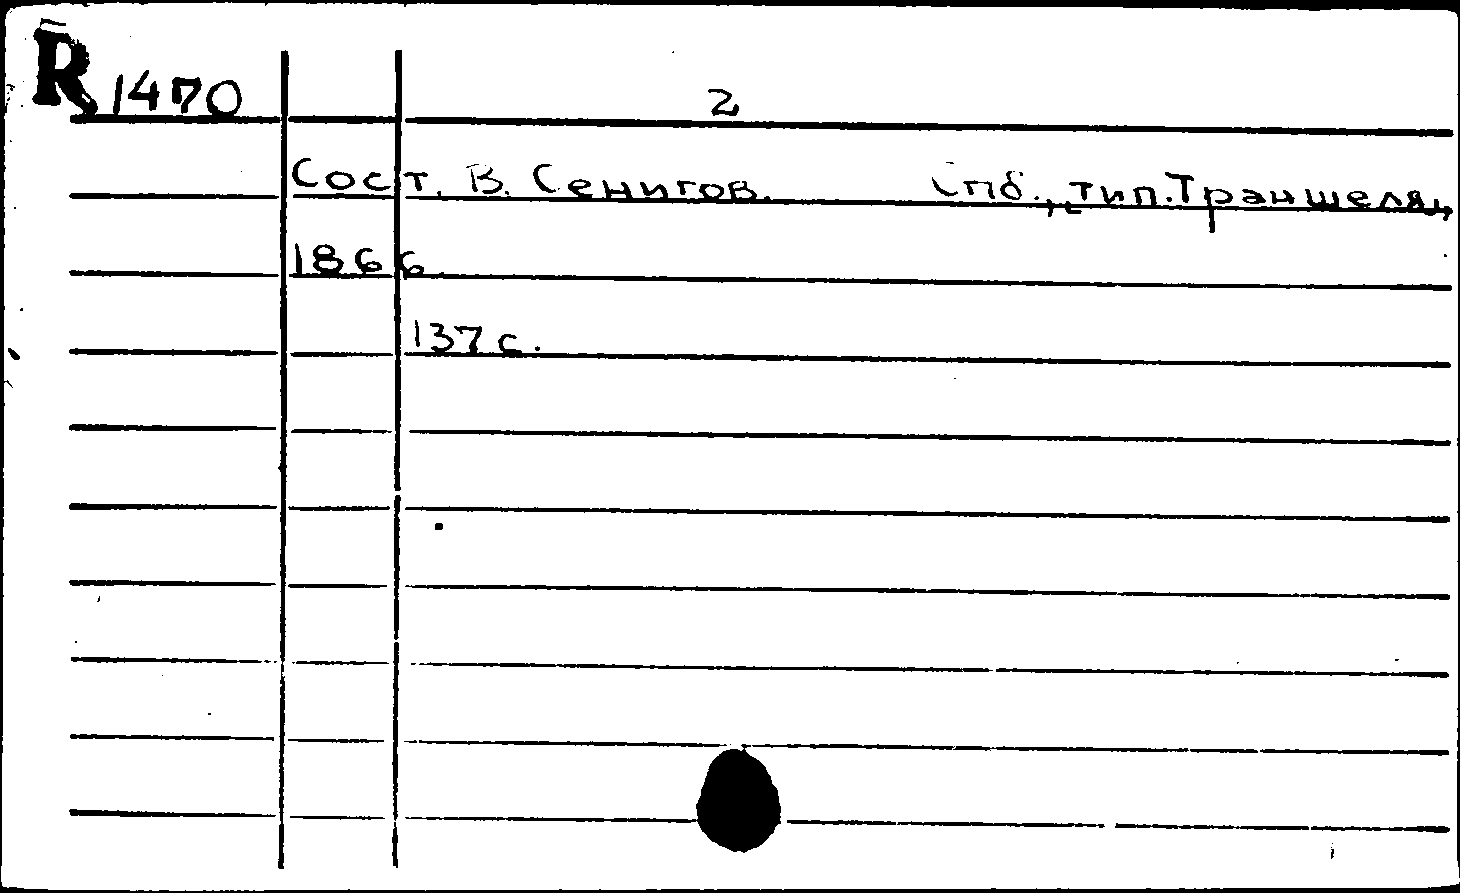 R 1470
2
Сост. В. Сенигов. Спб., тип. Траншеля,
1866.
137 с.